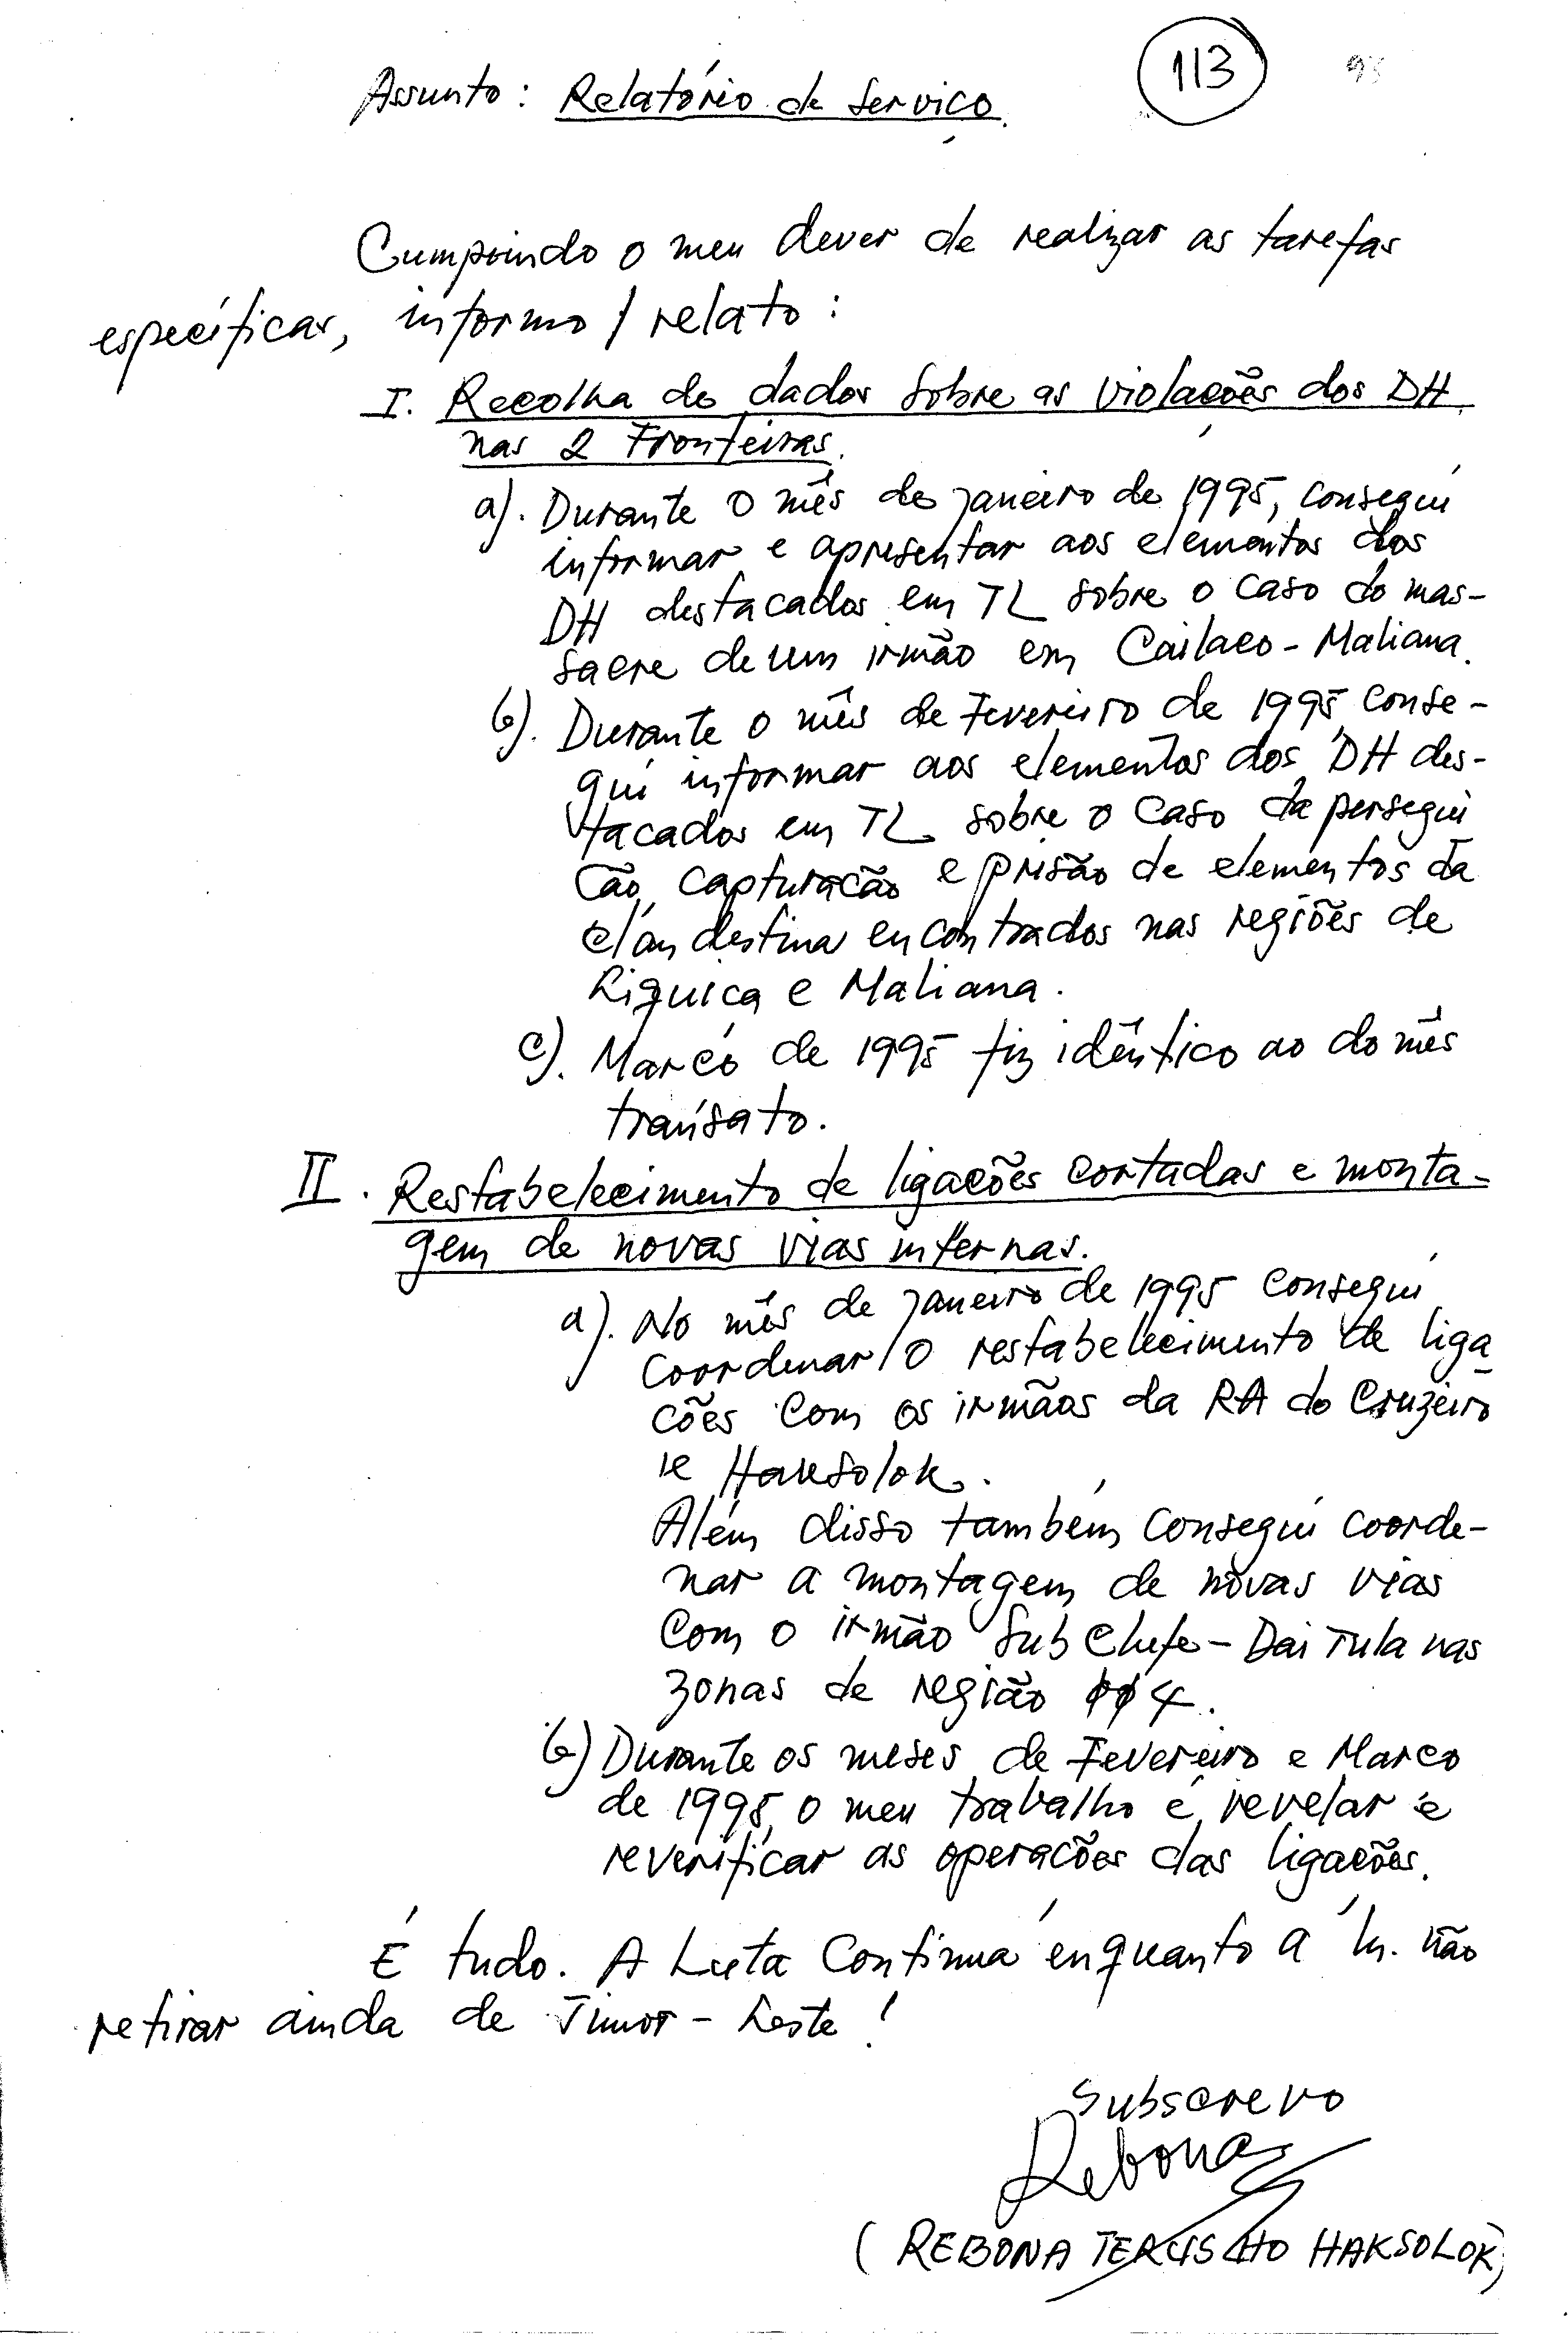 113
Assunto: Relatório de Serviço.
Cumprindo o meu dever de realizar as tarefas
específicas, informo / relato:
I. Recolha de dados sobre as violações dos DH
nas 2 Fronteiras.
a). Durante o mês de janeiro de 1995, consegui
informar e apresentar aos elementos dos
DH destacados em TL sobre o caso do mas-
sacre de um irmão em Cailaco - Maliana.
b). Durante o mês de Fevereiro de 1995, conse-
gui informar aos elementos dos DH des-
tacados em TL sobre o caso da persegui
ção, capturação e prisão de elementos da
clandestina encontrados nas regiões de
Liquiça e Maliana.
c). Março de 1995 fiz idêntico ao do mês
transato.
II. Restabelecimento de ligações cortadas e monta-
gem de novas vias internas.
a). No mês de janeiro de 1995 consegui
coordenar o restabelecimento de liga
ções com os irmãos da RA do Cruzeiro
e Haksolok.
Além disso também consegui coorde-
nar a montagem de novas vias
com o irmão Sub Chefe - Dai Tula nas
zonas de região 4.
b) Durante os meses de Fevereiro e Março
de 1995, o meu trabalho é revelar e
reverificar as operações das ligações.
É tudo. A Luta Continua enquanto a In. não
retirar ainda de Timor - Leste!
Subscrevo
Rebona
(REBONA HAKSOLOK)